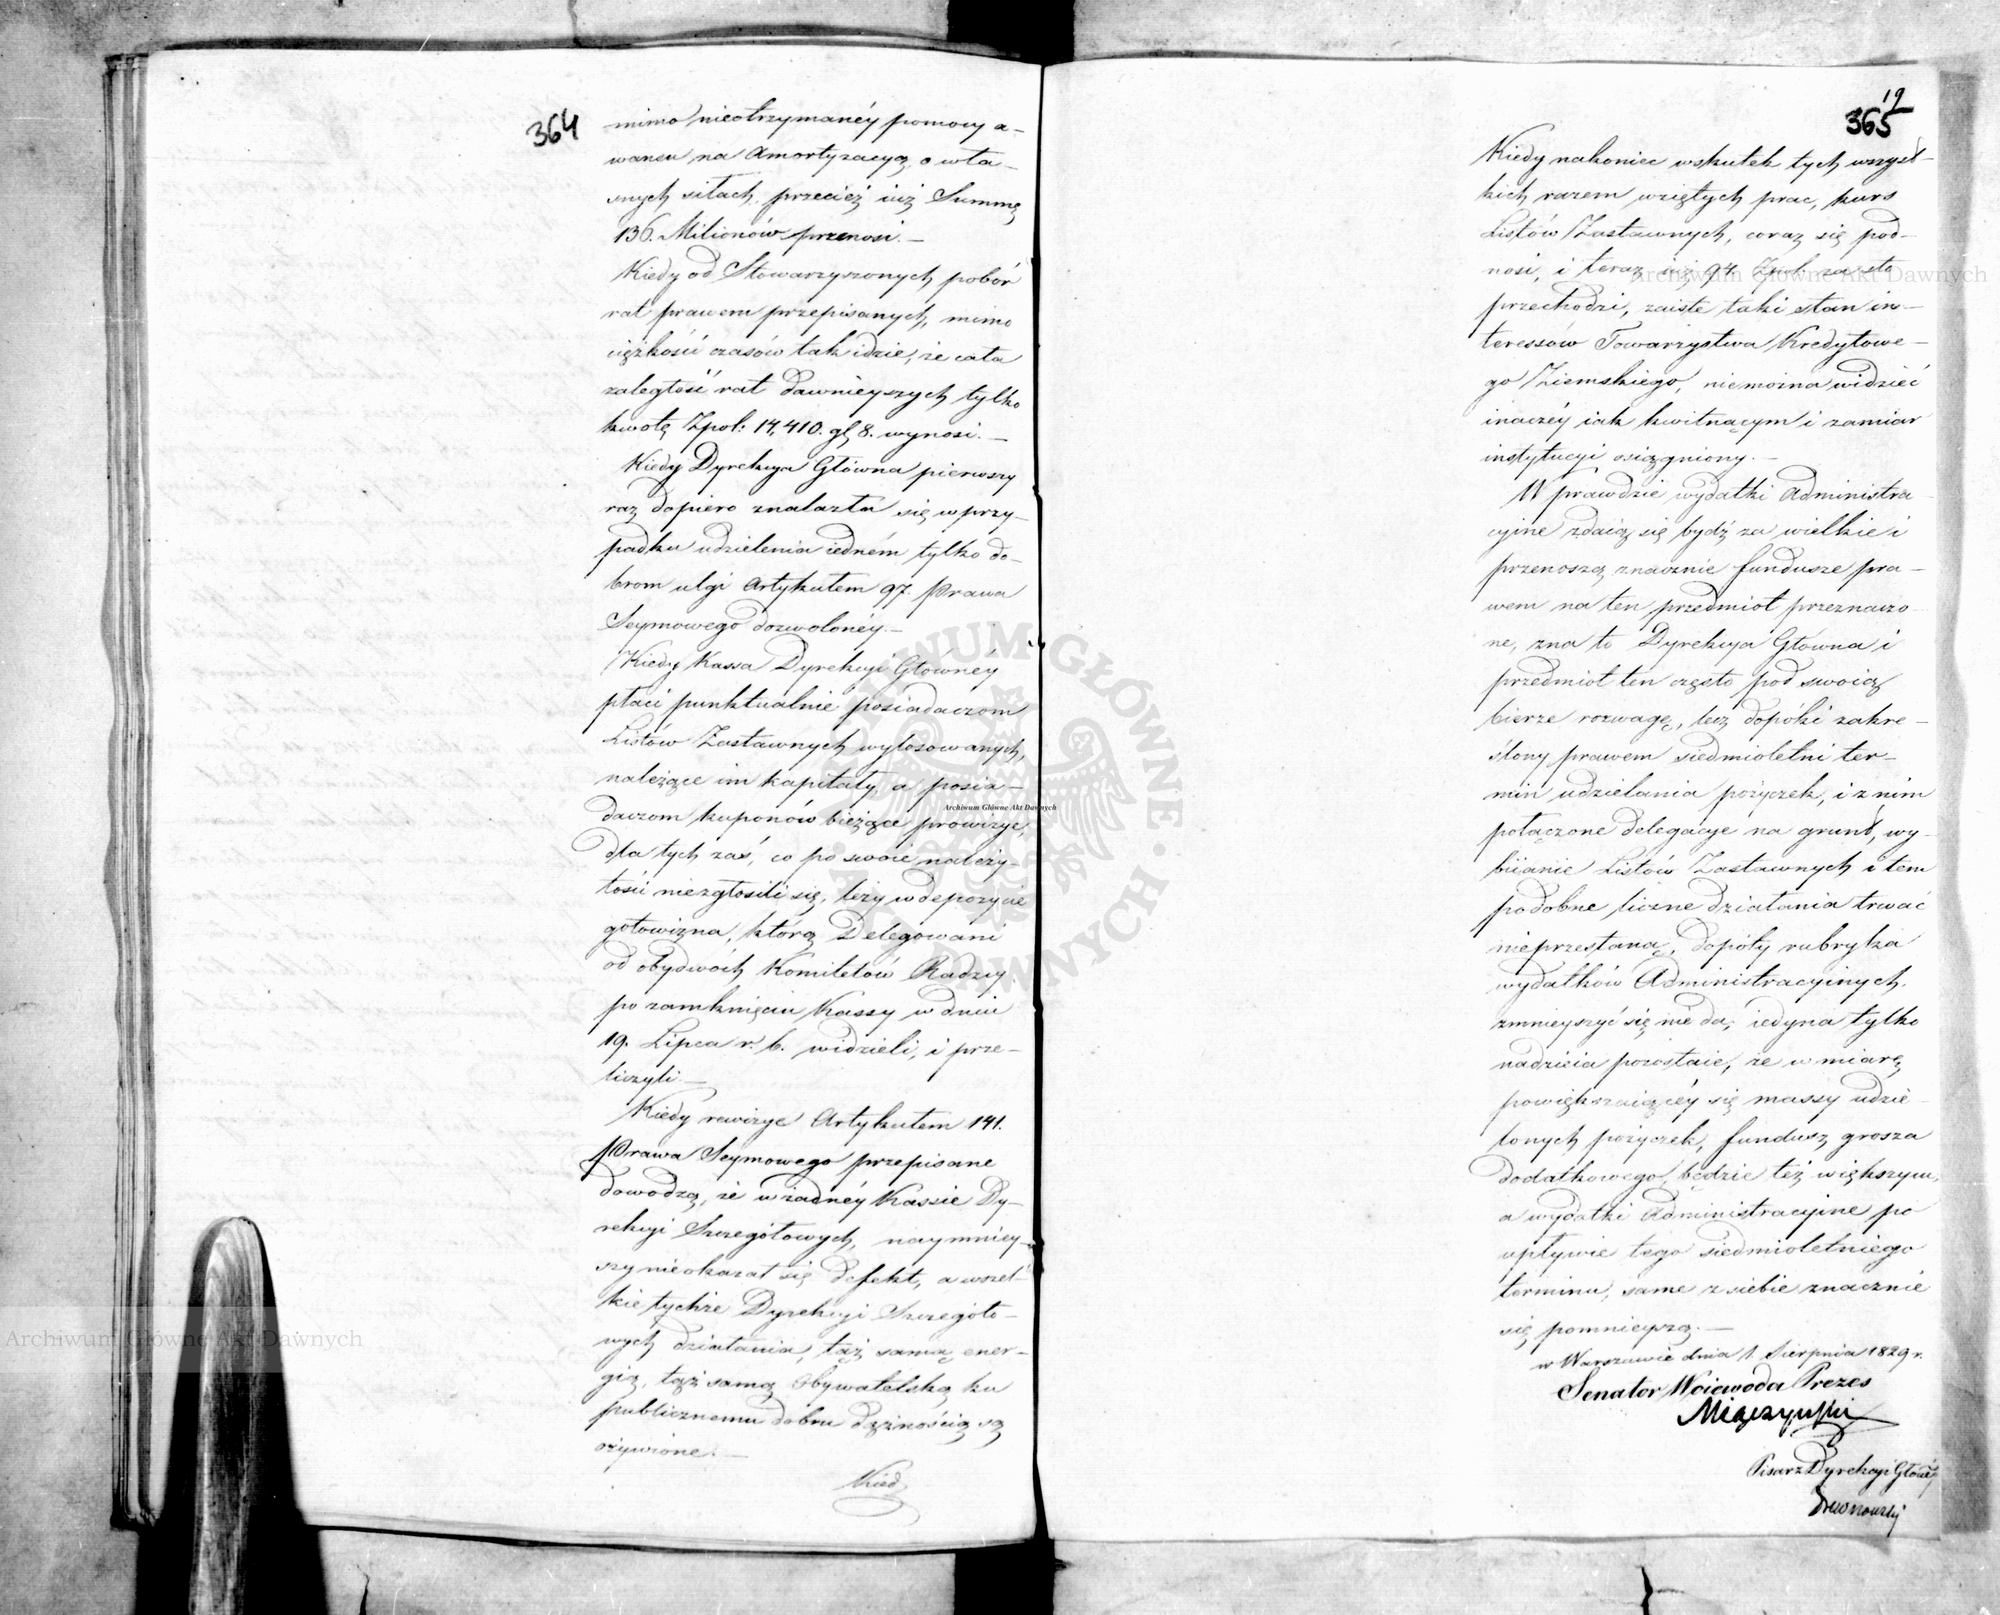 364
mimo nieotrzymanéy pomocy a-
wansu na Amortyzacyą o wła-
snych siłach, przecież iuż Summę
136. Milionów przenosi. —
Kiedy od Stowarzyszonych pobór
rat prawem przepisanych, mimo
ciężkości czasów tak idzie, że cała
zaległość rat dawnieyszych tylko
kwotę Zpol: 14,410. g. 8. wynosi. —
Kiedy Dyrekcya Główna pierwszy
raz dopiero znalazła się w przy-
padku udzielenia iedném tylko do-
brom ulgi Artykułem 97. Prawa
Seymowego dozwolonéy. —
Kiedy Kassa Dyrekcyi Głównéy
płaci punktualnie posiadaczom
Listów Zastawnych wylosowanych,
należące im kapitały, a posia-
daczom kuponów bieżące prowizye,
dla tych zaś, co po swoie należy-
tości niezgłosili się, leży w depozycie
gotowizna, którą Delegowani
od obydwóch Komitetów Radzcy
po zamknięciu Kassy w dniu
19. Lipca r. b. widzieli, i prze-
liczyli. —
Kiedy rewizye Artykułem 141.
Prawa Seymowego przepisane
dowodzą, że w żadnéy Kassie Dy-
rekcyi Szczegółowych, naymniey-
szy nieokazał się defekt, a wszel-
kie tychże Dyrekcyi Szczegóło-
wych działania, tąż samą ener-
gią, tąż samą Obywatelską ku
publicznemu dobru dążnością są
ożywione. —
Kiedy
19
365
Kiedy nakoniec wskutek tych wszyst-
kich razem wziętych prac, kurs
Listów Zastawnych, coraz się pod-
nosi, i teraz iuż 94. Zpol. za sto
przechodzi, zaiste taki stan in-
teressów Towarzystwa Kredytowe-
go Ziemskiego, niemożna widzieć
inaczéy iak kwitnącym i zamiar
instytucyi osiągniony. —
W prawdzie wydatki Administra-
cyine zdaią się bydź za wielkie i
przenoszą znacznie fundusze pra-
wem na ten przedmiot przeznaczo-
ne, zna to Dyrekcya Główna i
przedmiot ten często pod swoią
bierze rozwagę, lecz dopóki zakre-
ślony prawem siedmioletni ter-
min udzielania pożyczek, i z nim
połączone delegacye na grunt, wy-
biianie Listów Zastawnych i tem
podobne liczne działania trwać
nieprzestaną, dopóty rubryka
wydatków Administracyinych,
zmnieyszyć się nie da, iedyna tylko
nadzieia pozostaie, że w miarę
powiększaiącéy się massy udzie-
lonych pożyczek, fundusz grosza
dodatkowego, będzie też większym,
a wydatki Administracyine po
upływie tego siedmioletniego
terminu, same z siebie znacznie
się pomnieyszą. —
w Warszawie dnia 1 Sierpnia 1829 r.
Senator Woiewoda Prezes
Miączyński
Pisarz Dyrekcyi Główn.
Drewnowski
Archiwum Główne Akt Dawnych
Archiwum Główne Akt Dawnych
Archiwum Główne Akt Dawnych